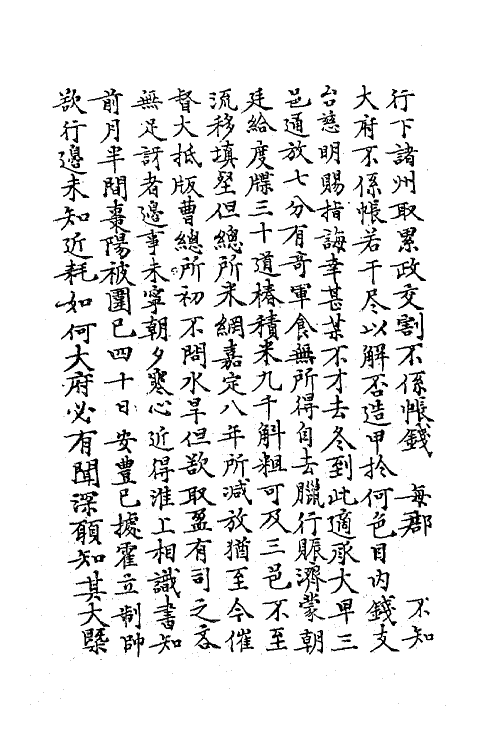 行下諸州取累政交割不係帳錢　每郡　　不知
大府不係帳若干尽以解否造甲於何色目内錢支
台慈明賜指誨幸甚某不才去冬到此適承大旱三
邑通放七分有奇軍食無所得自去臘行賑濟蒙朝
廷給度牒三十道樁積米九千斛粗可及三邑不至
流移填壑但總所米綱嘉定八年所减放猶至今催
督大抵版曹總所初不問水旱但欲取盈有司之吝
無足訝者邊事未寧朝夕寒心近得淮上相識書知
前月半間棗陽被圍已四十日安豐已據霍立制帥
欲行邊未知近耗如何大府必有聞深願知其大槩